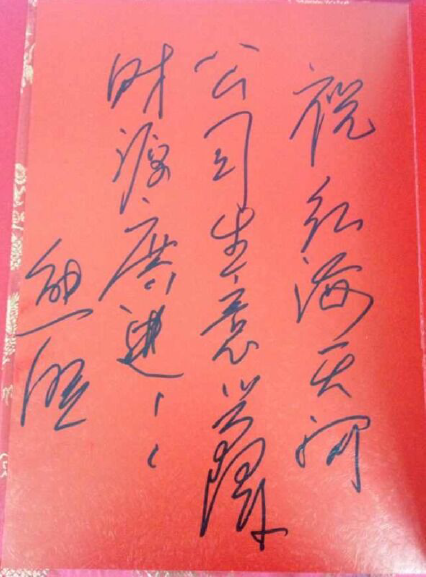 祝红海天河
公司生意兴隆
财源广进！！